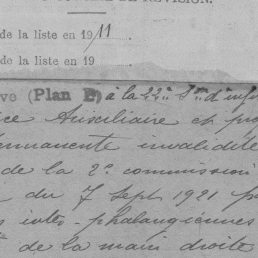 DE RÉVISION.
de la liste en 1911
de la liste en 19
ve (Plan E) à la 22e Son d'inf
ce Auxiliaire et pro
ermanente invalidité
de la 2e commission
du 7 Sept 1921 p
inter-phalangiennes
de la main droite